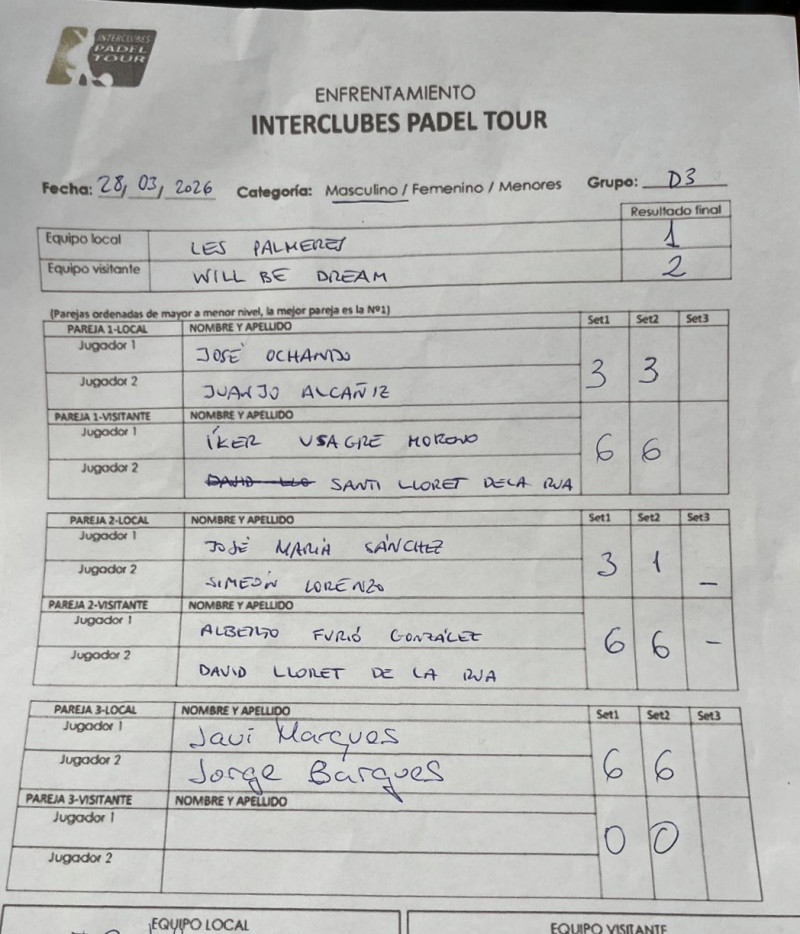 INTERCLUBES
PADEL
TOUR
ENFRENTAMIENTO
INTERCLUBES PADEL TOUR
Fecha: 28, 03, 2026 Categoría: Masculino / Femenino / Menores Grupo: D3
Resultado final
Equipo local LES PALMERES 1
Equipo visitante WILL BE DREAM 2
(Parejas ordenadas de mayor a menor nivel, la mejor pareja es la Nº1)
PAREJA 1-LOCAL NOMBRE Y APELLIDO Set1 Set2 Set3
Jugador 1 JOSÉ OCHANDO
3 3
Jugador 2 JUANJO ALCAÑIZ
PAREJA 1-VISITANTE NOMBRE Y APELLIDO
Jugador 1 ÍKER USAGRE MORENO
6 6
Jugador 2 DAVID LLO SANTI LLORET DE LA RUA
PAREJA 2-LOCAL NOMBRE Y APELLIDO Set1 Set2 Set3
Jugador 1 JOSÉ MARÍA SÁNCHEZ
3 1 -
Jugador 2 SIMEÓN LORENZO
PAREJA 2-VISITANTE NOMBRE Y APELLIDO
Jugador 1 ALBERTO FURIÓ GONZÁLEZ
6 6 -
Jugador 2 DAVID LLORET DE LA RUA
PAREJA 3-LOCAL NOMBRE Y APELLIDO Set1 Set2 Set3
Jugador 1 Javi Marques
6 6
Jugador 2 Jorge Barques
PAREJA 3-VISITANTE NOMBRE Y APELLIDO
Jugador 1
0 0
Jugador 2
EQUIPO LOCAL EQUIPO VISITANTE